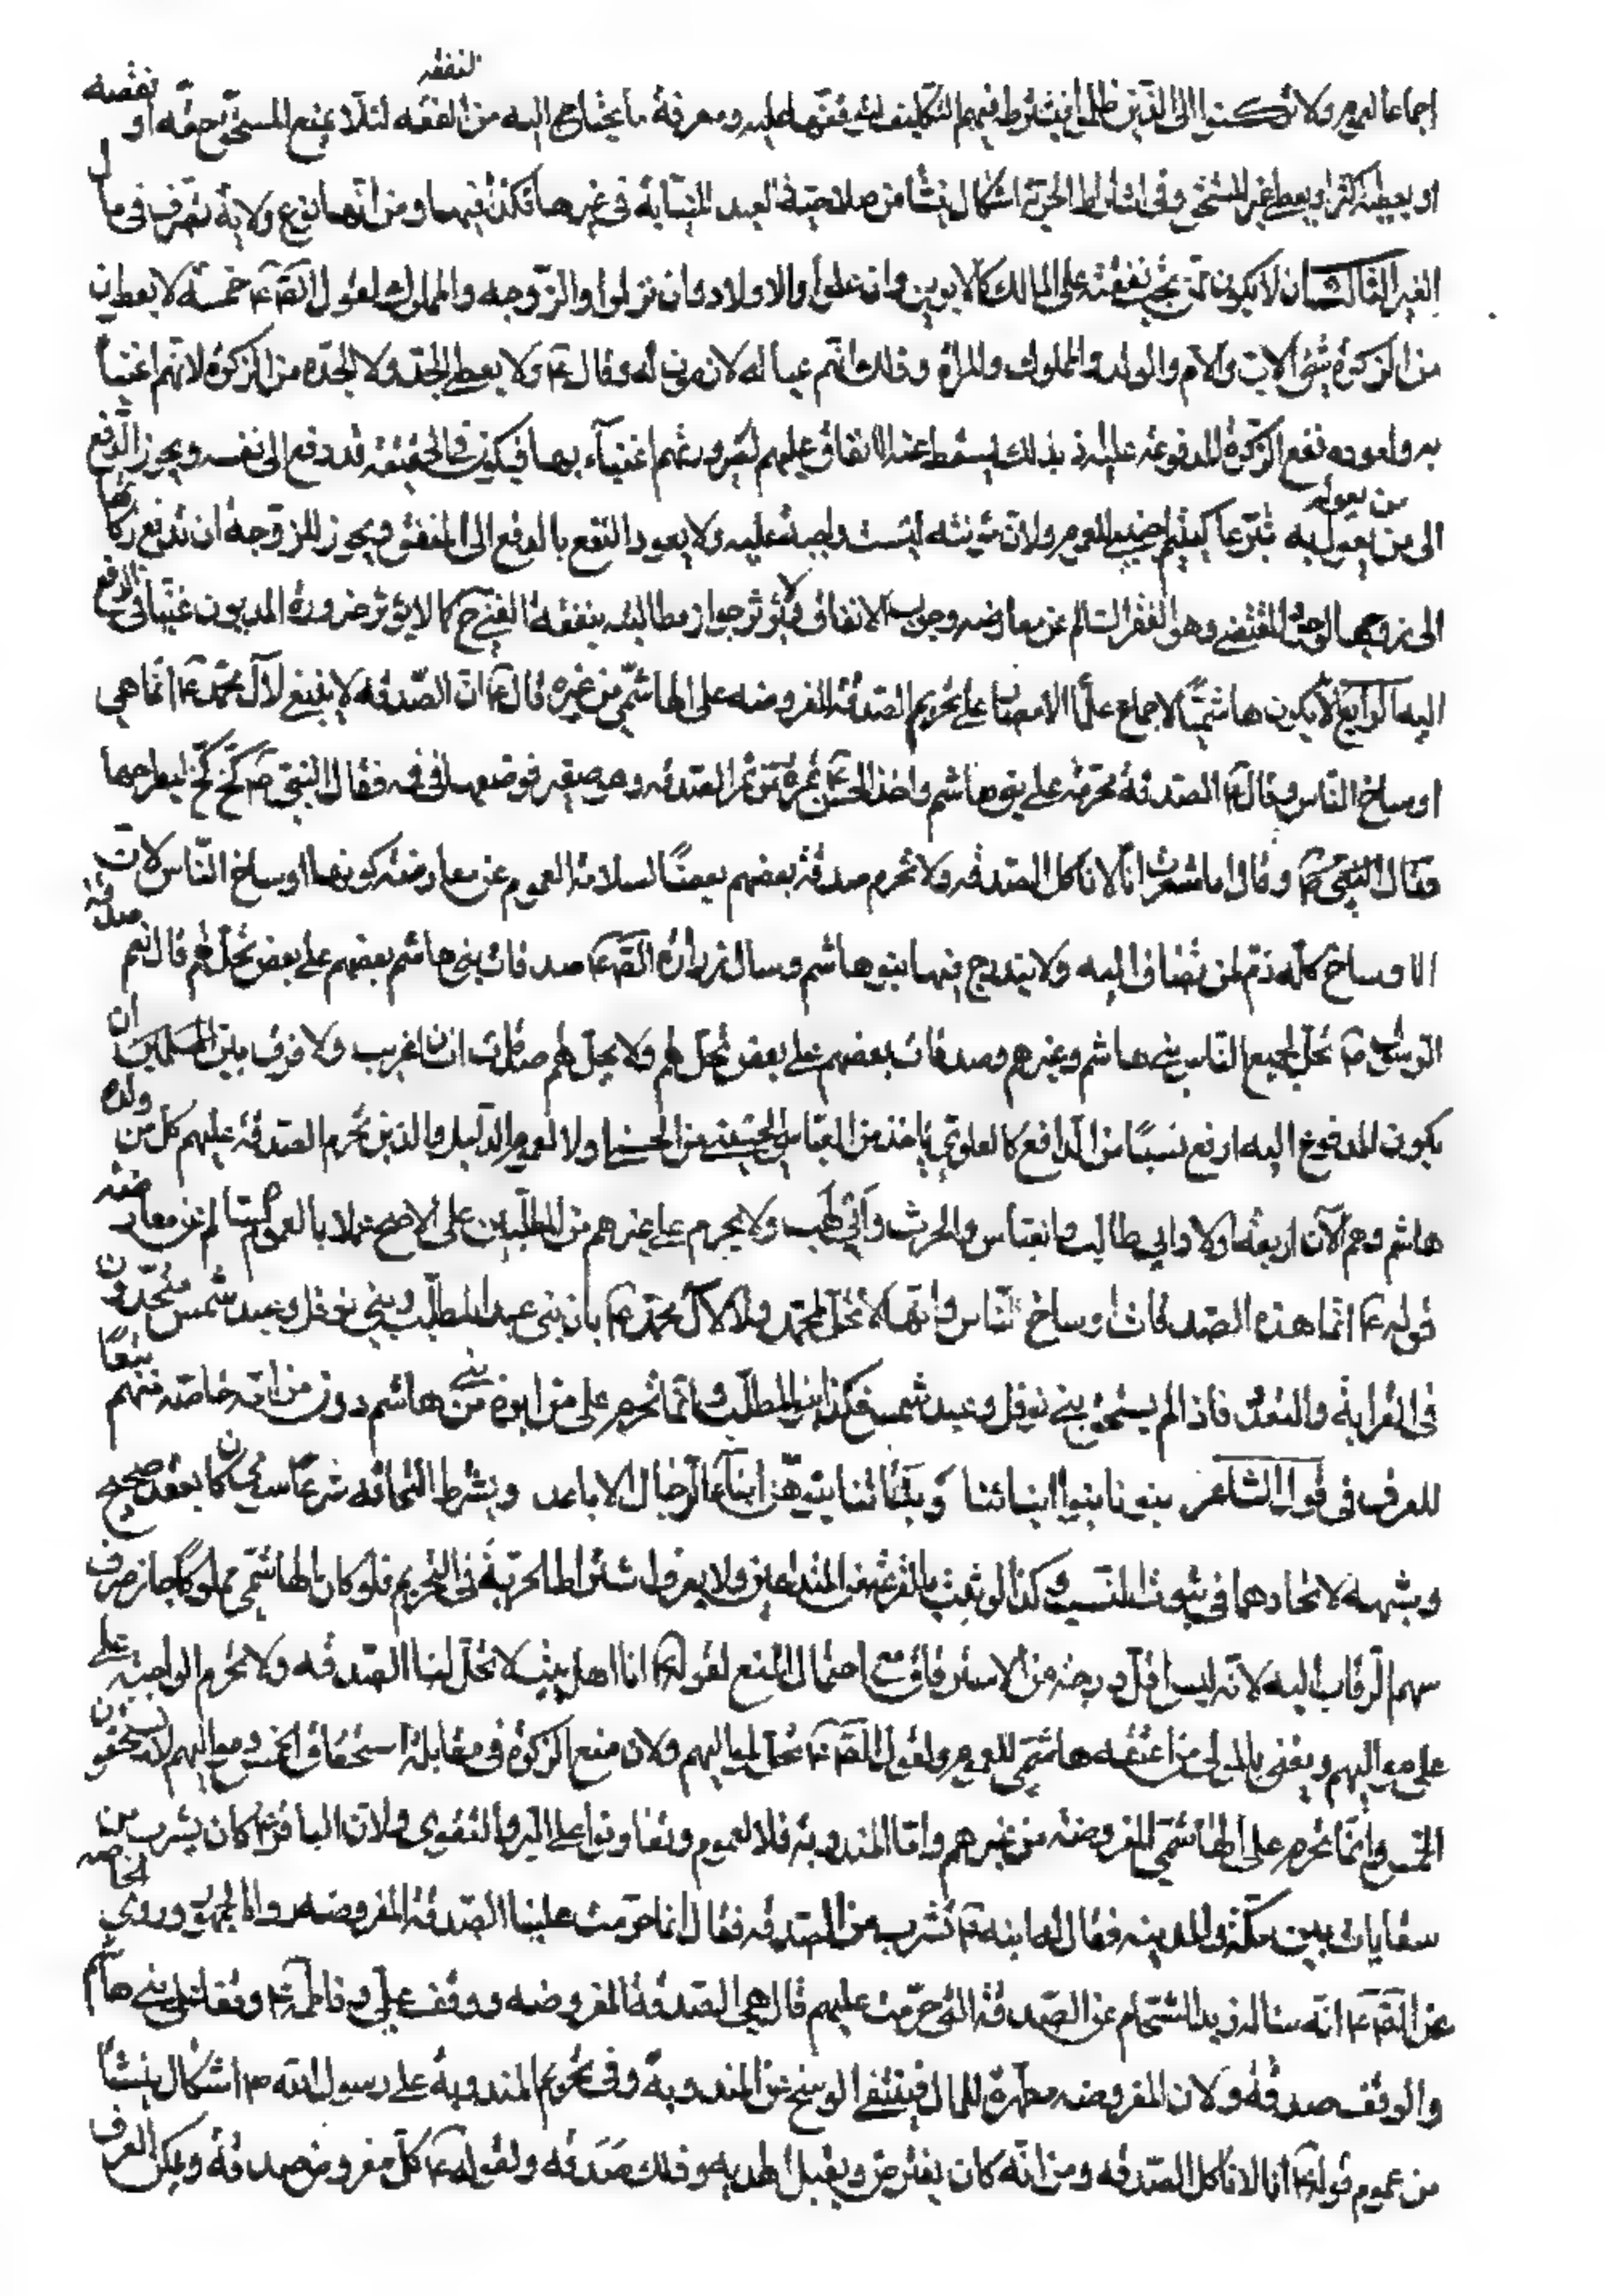 اجماعا لعموم ولا تركنوا الى الذين ظلموا فيشترط فيهم التكليف لتوقفها عليه ومعرفة ما يحتاج اليه من الفقه لئلا يمنع المستحق حقه او نقصه
او يعطيه اكثر او يعطى غير المستحق وفى اشتراط الحرية اشكال ينشأ من صلاحية العبد للنيابة فى غيرها فكذا فيها ومن انها نوع ولاية تصرف فى مال
الغير الثالث ان لا يكون ممن تجب نفقته على المالك كالابوين وان علوا والاولاد وان نزلوا والزوجه والمملوك لقول الصّ ع خمسة لا يعطون
من الزكوة شئ الاب والام والولد والمملوك والمراة وذلك انهم عياله لازمون له وقال ع ولا يعطى الجد ولا الجدة من الزكوة لانهم اغنيا
به ولعود نفع الزكوة المدفوعة عليه اذ بذلك يسقط عنه الانفاق عليهم لصيرورتهم اغنياء بها فيكون فى الحقيقة قد دفع الى نفسه ويجوز الدفع
الى من يعول به تبرعا كيتيم اجنبى للعموم ولان مؤنته ليست واجبة عليه ولا يعود النفع بالدفع الى المنفق ويجوز للزوجة ان تدفع زكاتها
الى زوجها لوجود المقتضى وهو الفقر السالم عن معارضه وجوب الانفاق ولا يؤثر جواز مطالبته بنفقة الغنى ح كما لا يؤثر ضرورة المديون غنيا فى الدفع
اليه الرابع الا يكون هاشميا لاجماع علماء الامصار على تحريم الصدقة المفروضه على الهاشمى من غيره قال ع ان الصدقه لا ينبغى لآل محمد ع انما هى
اوساخ الناس وقال ع الصدقة محرمة على بنى هاشم واخذ الحسن ع تمرة من تمر الصدقه وهو صغير فوضعها فى فيه فقال النبى ص كخ كخ ليطرحها
فقال النبى ص وقال اما شعرت انا لا ناكل الصدقه ولا تحرم صدقة بعضهم بعضا لسلامة العموم عن معارضة كونها اوساخ الناس لان
الاوساخ كانه ذم لمن تضاف اليه ولا يندرج فيها بنو هاشم وسال زرارة الصّ ع صدقات بنى هاشم بعضهم على بعض تحل لهم قال نعم صدقة
الرسول ص تحل لجميع الناس بنى هاشم وغيرهم وصدقات بعضهم على بعض تحل لهم ولا يحل لهم صدقات انسان غريب ولا فرق بين المسلمين ان
يكون المدفوع اليه ارفع نسبا من الدافع كالعلوى ياخذ من العباسى والحسينى من الحسنى او لا لعموم الدليل والذين تحرم الصدقة عليهم كل من ولده
هاشم وهم الآن اربعة اولاد ابى طالب والعباس والحرث وابى لهب ولا يحرم على غيرهم من المطلبين على الاصح عملا بالعموم السالم عن معارضة
قوله ع انما هذه الصدقات اوساخ الناس وانها لا تحل لمحمد ولا لآل محمد ع بان بنى عبد المطلب وبنى نوفل وعبد شمس متحدون
فى القرابة والبعد فاذا لم يستحق بنى نوفل وعبد شمس فكذا بنو المطلب وانما تحرم على من ابوه من بنى هاشم دون من امه خاصة منهم تبعا
للعرف فى قول الشاعر بنونا بنوا ابنائنا وبناتنا بنوهن ابناء الرجال الاباعد ويشترط التحاقه شرعا سواء كان بعقد صحيح
وشبهه لاتحادهما فى ثبوت النسب وكذا لو ثبت بالقرعة بين المتداعيين ولا يعرف اشتراط الحرية فى التحريم فلو كان الهاشمى مملوكا جاز صرف
سهم الرقاب اليه لانه ليس اقل درجة من الاسترقاق مع احتمال المنع لقوله ع انا اهل بيت لا تحل لنا الصدقه ولا تحرم الواجبة على
على مواليهم ويعنى بالمولى من اعتقه هاشمى للعموم ولقول الصّ ع تحل لمواليهم ولان منع الزكوة فى مقابلة استحقاق الخمس ومواليهم لا يستحقون
الخمس وانما تحرم على الهاشمى المفروضة من غيرهم واما المندوبة فلا لعموم وتعاونوا على البر والتقوى ولان الباقر ع كان يشرب من
سقايات بين مكة والمدينه فقال له ابنه ع تشرب من الصدقه فقال انما حرمت علينا الصدقة المفروضه رواه الجمهور وروى الخاصه
عن الصّ ع انه ساله زيد الشحام عن الصدقة التى حرمت عليهم قال هى الصدقة المفروضه ووقف على وفاطمة ع وتقبل بنى هاشم
والوقف صدقة ولان المفروضه مطهرة للمال فينتفى الوسخ عن المندوبة وفى تحريم المندوبة على رسول الله ص اشكال ينشأ
من عموم قوله ع انا لا ناكل الصدقه ومن انه كان يقترض ويقبل الهديه وذلك صدقه ولقوله ع كل معروف صدقة ويمكن الفرق